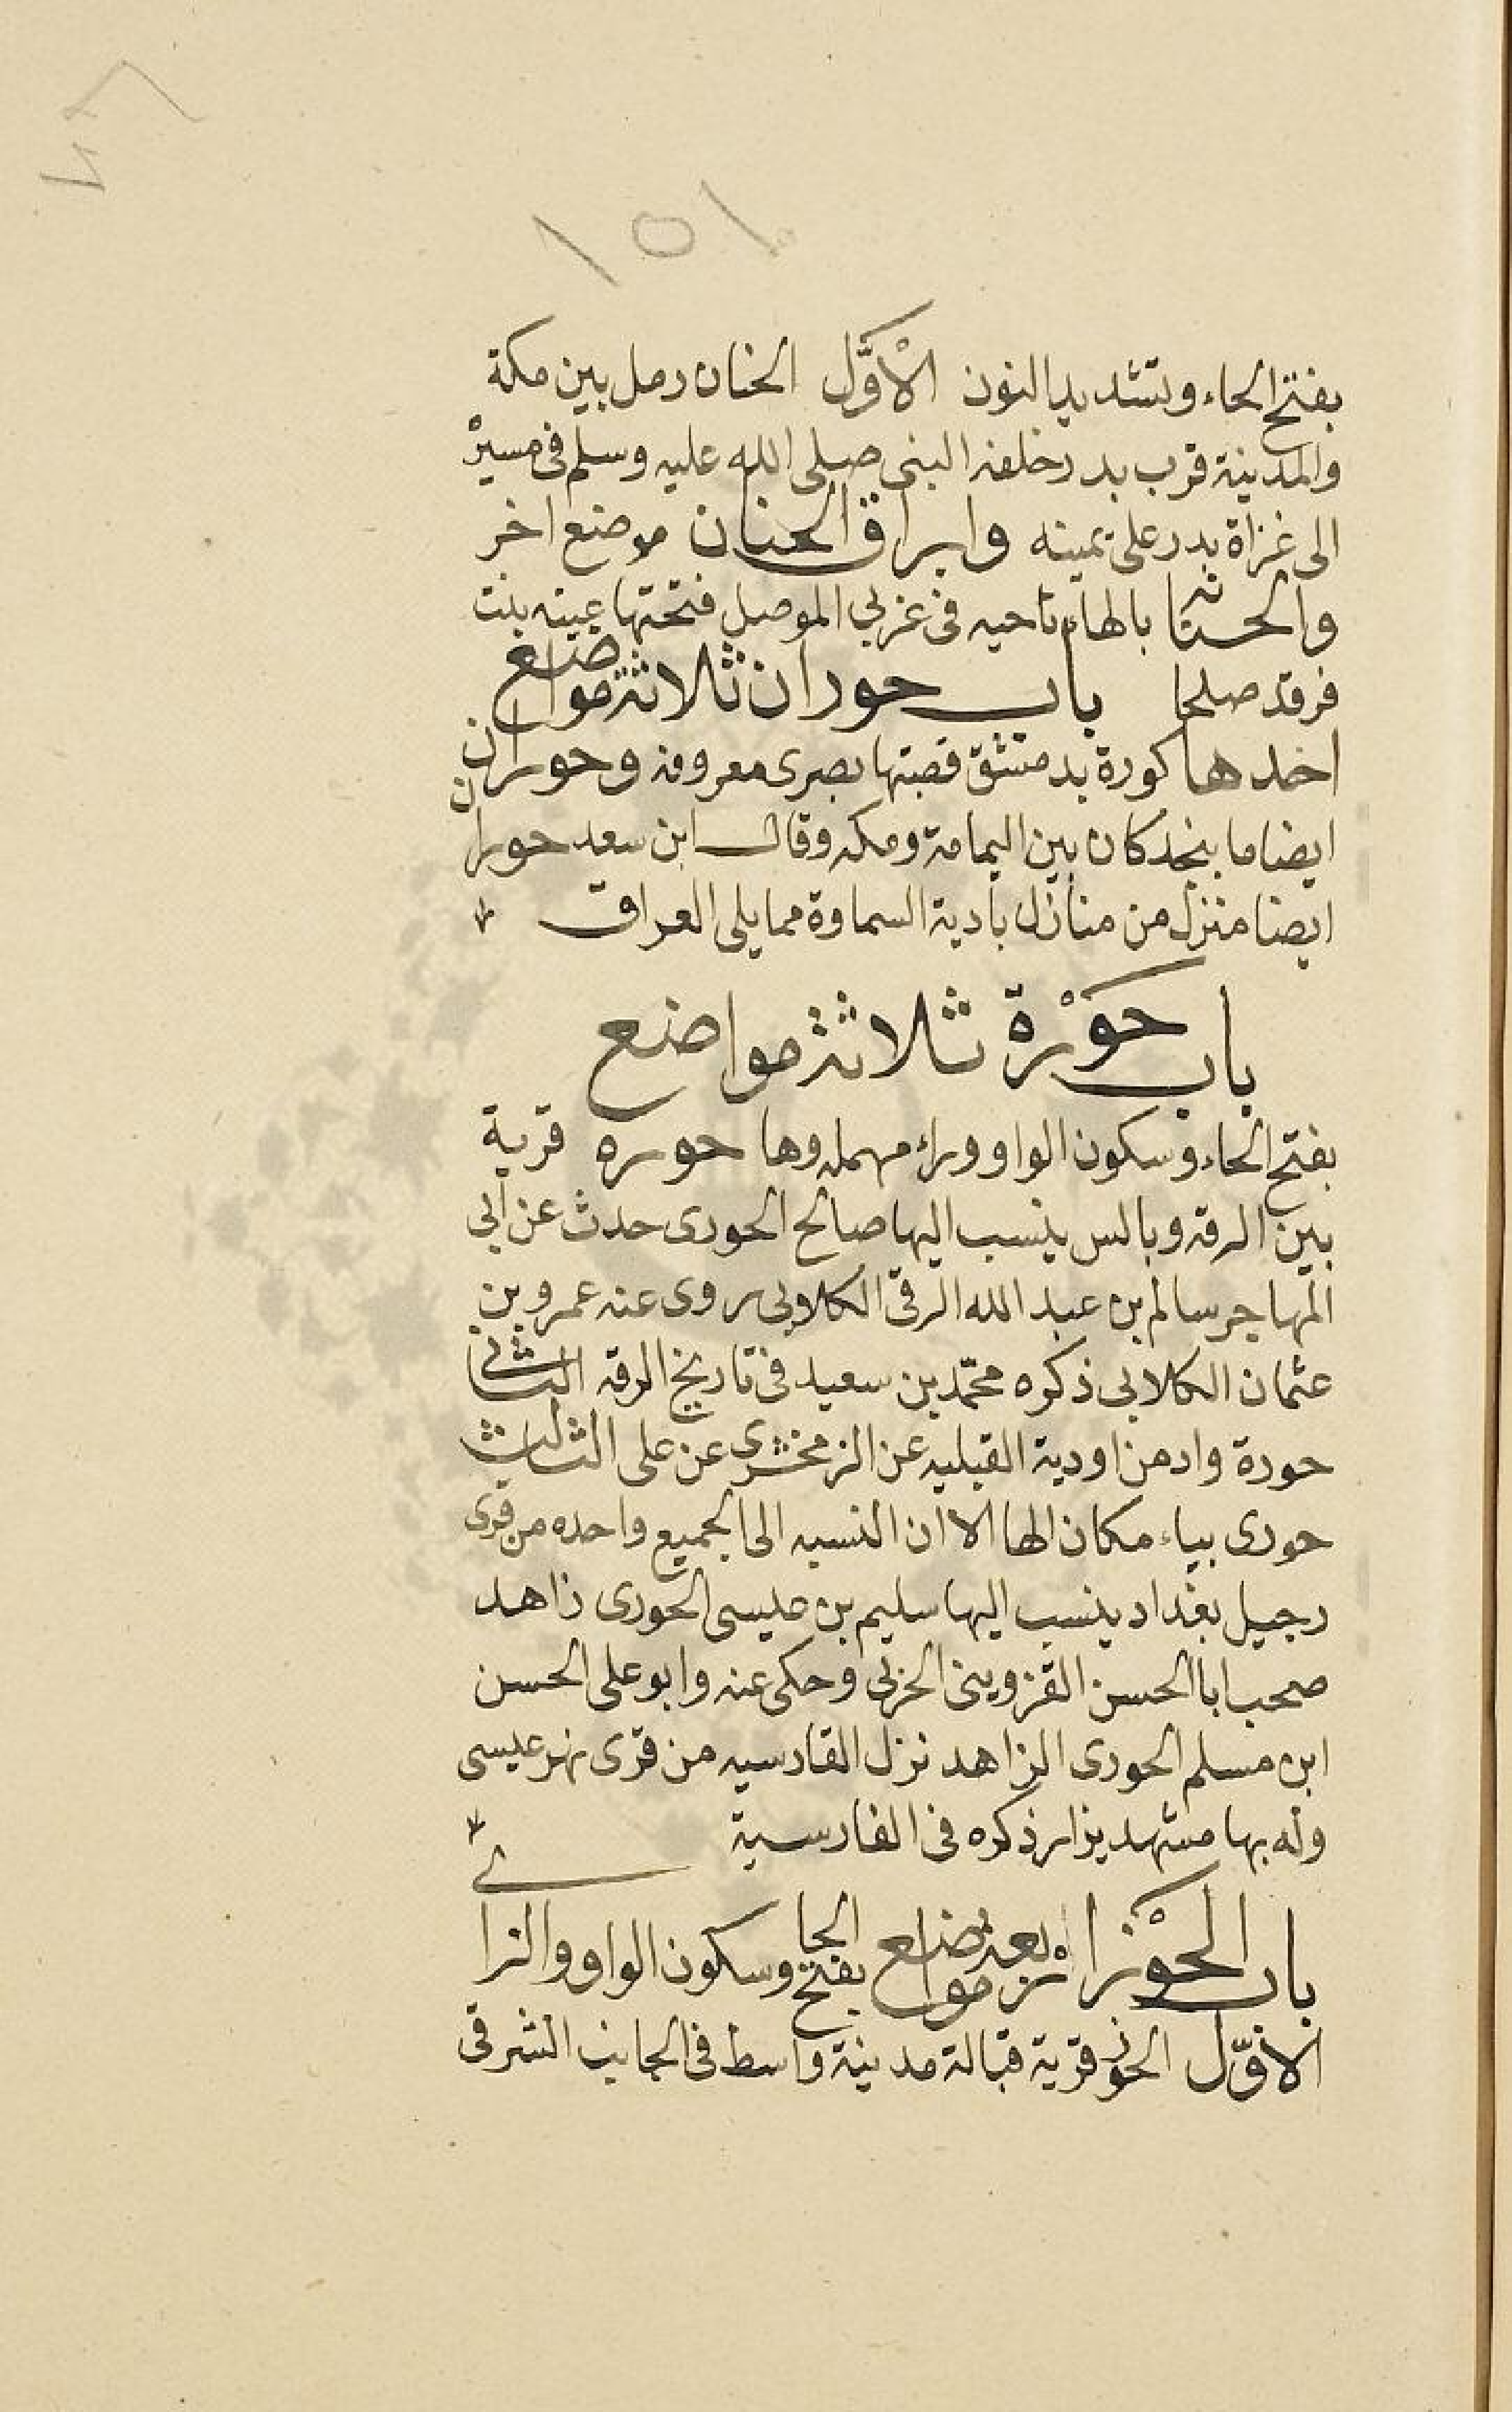 ١٥١
بفتح الحاء وتشديد النون الأوَّل الحنان رمل بين مكة
والمدينة قرب بدر خلفه النبى صلى الله عليه وسلم فى مسيره
الى غزاة بدر على يمينه وابراق الحنان موضع اخر
والحنانة بالهاء ناحيه فى غربي الموصل فتحتها عيينه بنت
فرقد صلحا باب حوران ثلاثة مواضع
احدها كورة بدمشق قصبتها بصرى معروفه وحوران
ايضا ما بنجد كان بين اليمامة ومكه وقال ابن سعد حوران
ايضا منزل من منازل بادية السماوة مما يلى العراق
باب حَوْرة ثلاثة مواضع
بفتح الحاء وسكون الواو وراء مهمله وها حوره قرية
بين الرقه وبالس ينسب اليها صالح الحورى حدث عن أبي
المهاجر سالم بن عبد الله الرقى الكلابى روى عنه عمرو بن
عثمان الكلابى ذكره محمّد بن سعيد فى تاريخ الرقه الثانى
حورة واد من اودية القبليه عن الزمخشرى عن على الثالث
حورى بياء مكان الها الا ان النسبه الى الجميع واحده من قرى
دجيل بغداد ينسب اليها سليم بن عيسى الحورى زاهد
صحب ابا الحسن القزوينى الحربى وحكى عنه وابو على الحسن
ابن مسلم الحورى الزاهد نزل القادسيه من قرى نهر عيسى
وله بها مشهد يزار ذكره فى الفارسية
باب الحَوْز اربعة مواضع بفتح الحا وسكون الواو والزا
الاوّل الحوز قرية قبالة مدينة واسط فى الجانب الشرقى